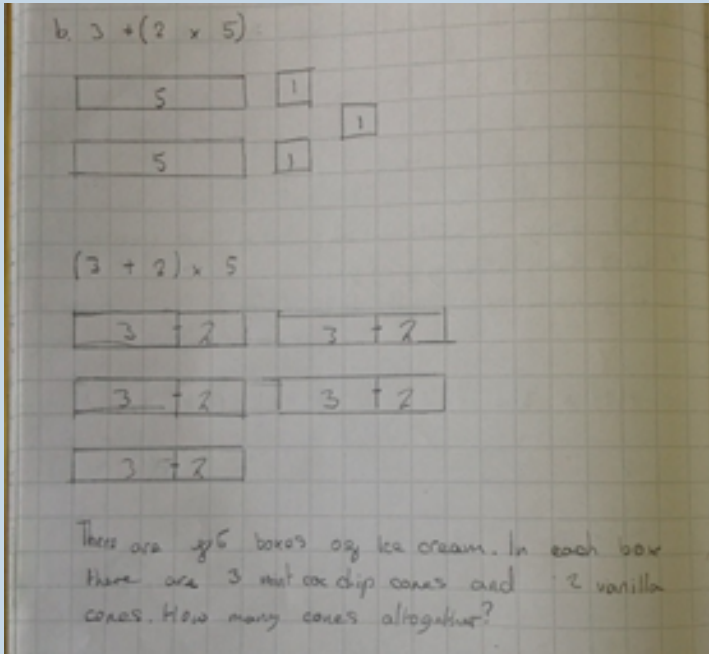 b. 3 + (2 x 5)
5 1
1
5 1
(3 + 2) x 5
3 + 2 3 + 2
3 + 2 3 + 2
3 + 2
There are 5 boxes of ice cream. In each box
there are 3 mint choc chip cones and 2 vanilla
cones. How many cones altogether?